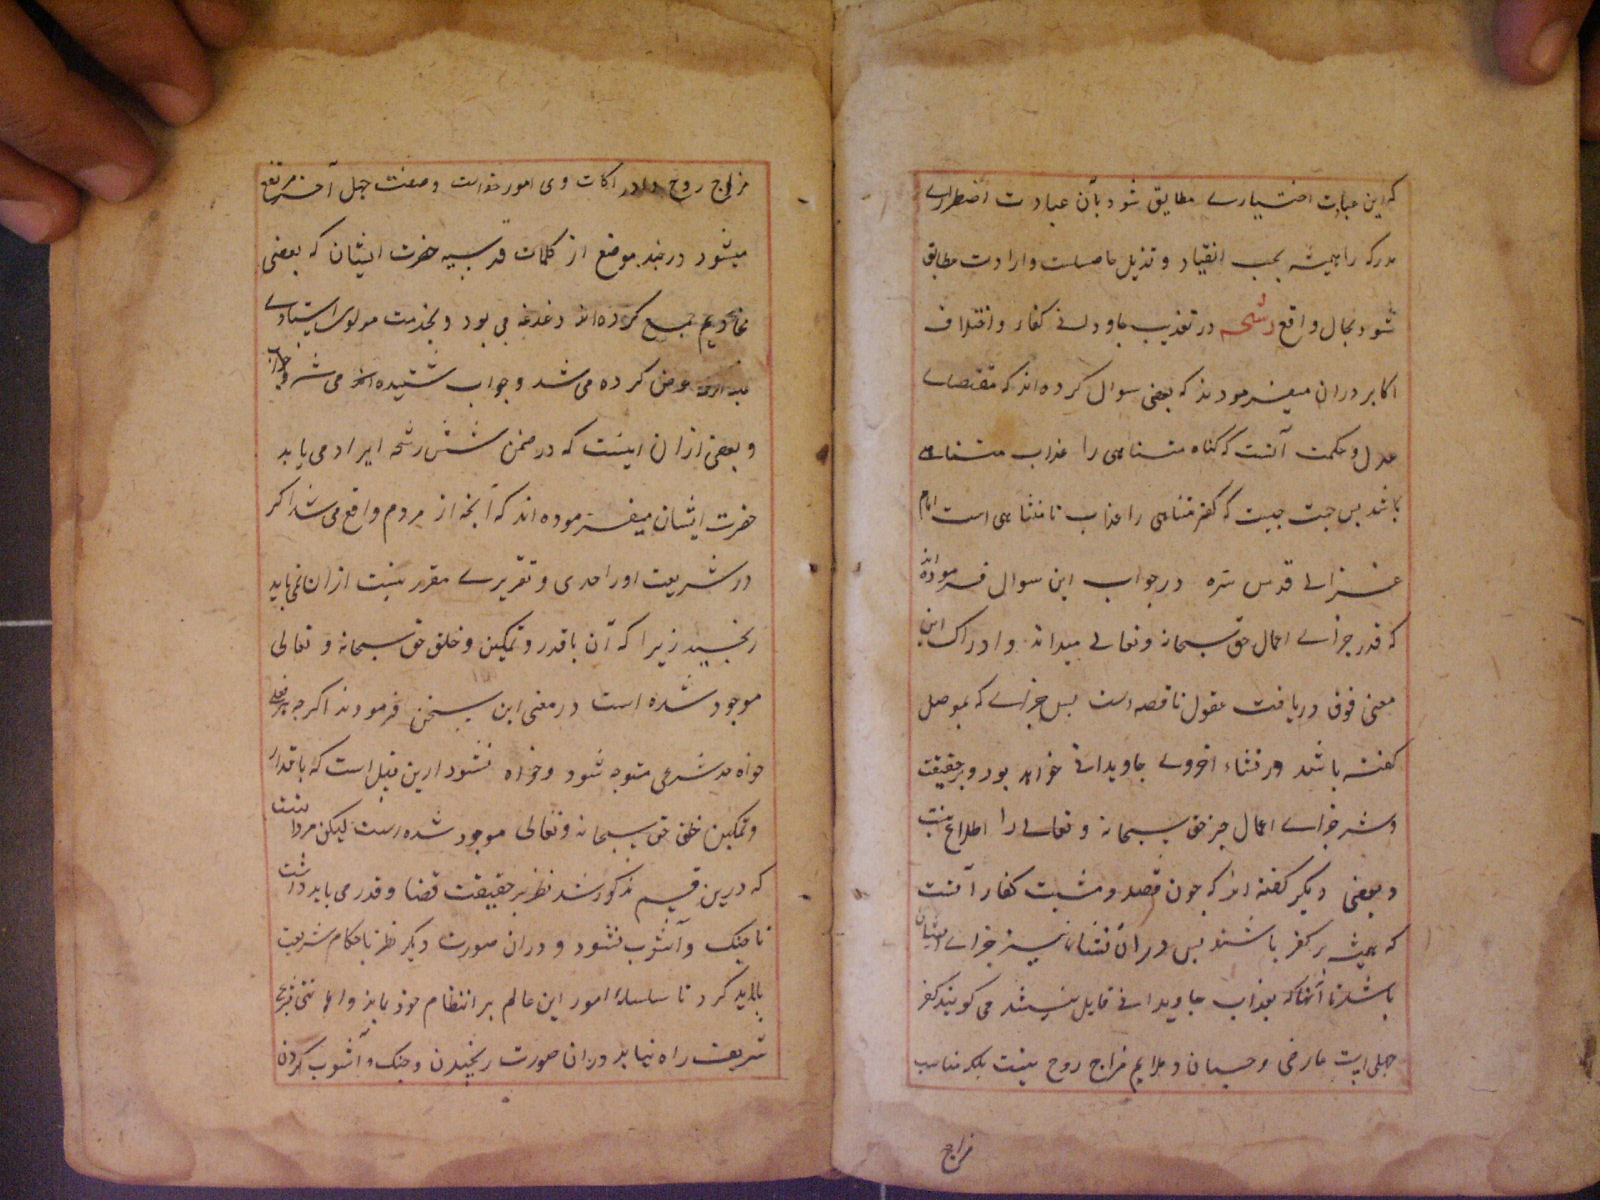 که این عبادت اختیاری مطابق شود بآن عبادت اضطراری
مدرکه را همیشه بحسب انقیاد و تذلیل حاصلست و ارادت مطابق
شود بحال واقع رشحه در تعذیب جاودانی کفار و اختلاف
اکابر دران میفرمودند که بعضی سوال کرده اند که مقتضای
عدل و حکمت آنست که کناه متناهی را عذاب متناهی
باشد بس جهت جیست که کفر متناهی را عذاب نامتناهی است امام
غزالی قدس سره در جواب این سوال فرموده اند
که قدر جزای اعمال حق سبحانه و تعالی میداند و ادراک این
معنی فوق دریافت عقول ناقصه است بس جزای که بموصل
کفته باشد در نشاء اخروی جاویدانی خواهد بود و بر حقیقت
و سر جزای اعمال جز حق سبحانه و تعالی را اطلاع نیست
و بعضی دیکر کفته اند که جون قصد و نیت کفار آنست
که همیشه بر کفر باشند بس دران نشاء نیز جزای ایشان
باشد تا آنها که بعذاب جاویدانی قایل نیستند می کویند کفر
جهلی است عارضی و جسبان و ملایم مزاج روح نیست بلکه مناسب
مزاج
مزاج روح ادراکات وی امور حقه است و صفت جهل آخر مرتفع
میشود در جند موضع از کلمات قدسیه حضرت ایشان که بعضی
مخادیم جمع کرده اند دغدغه می بود و بخدمت مولوی استادی
عرض کرده می شد و جواب شنیده می شد
و بعضی ازان اینست که در ضمن شش رشحه ایراد می یابد
حضرت ایشان میفرموده اند که آنجه از مردم واقع می شد اکر
در شریعت او را حدی و تقریری مقرر نیست ازان نمی باید
رنجید زیرا که آن باقدر و تمکین و خلق حق سبحانه و تعالی
موجود شده است در معنی این سخن فرمودند اکرجه هر فعلی
خواه حد شرعی متوجه شود و خواه نشود ازین قبیل است که باقدار
و تمکین خلق حق سبحانه و تعالی موجود شده است لیکن مراد آنست
که درین قسم مذکور شد نظر بر حقیقت قضا و قدر می باید داشت
تا جنک و آشوب نشود و دران صورت دیکر نظر باحکام شریعت
باید کرد تا سلسله امور این عالم بر انتظام خود بماند و اهانتی
شریعت راه نیابد دران صورت رنجیدن و جنک و آشوب کردن